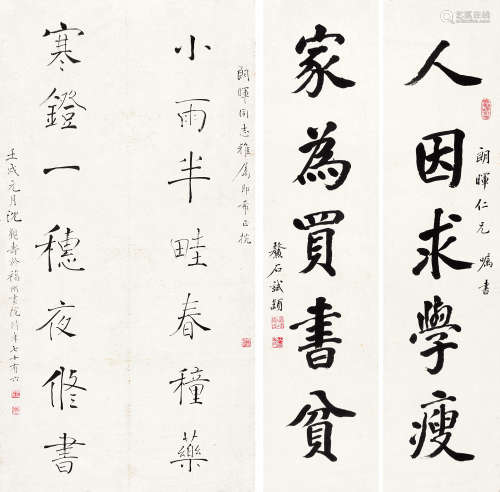 朗暉仁兄 嘱書
人因求學瘦
家為買書貧
朗暉同志雅屬即希正抗
小雨半畦春種藥
寒鐙一穗夜脩書
壬戌元月沈覲壽於福州書院時年七十有六